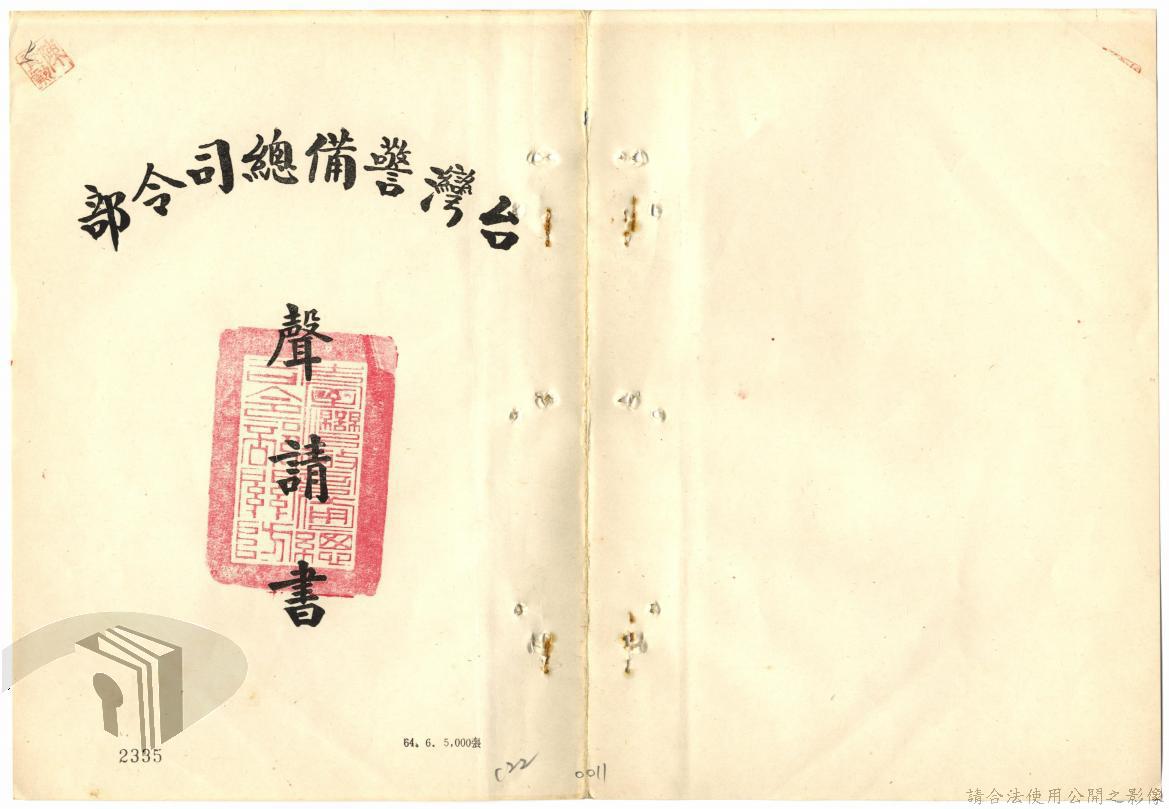 台灣警備總司令部
聲請書
2335
64. 6. 5,000張
C22
0011
請合法使用公開之影像